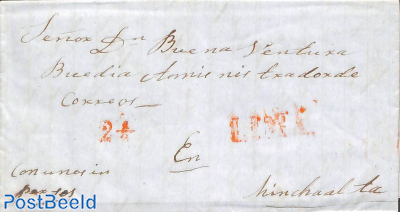 Señor Dn Buena Ventura
Buedia Aminis tradorde
Correos
2½ LIMA
En
con unos in
pesos
chincha alta
PostBeeld